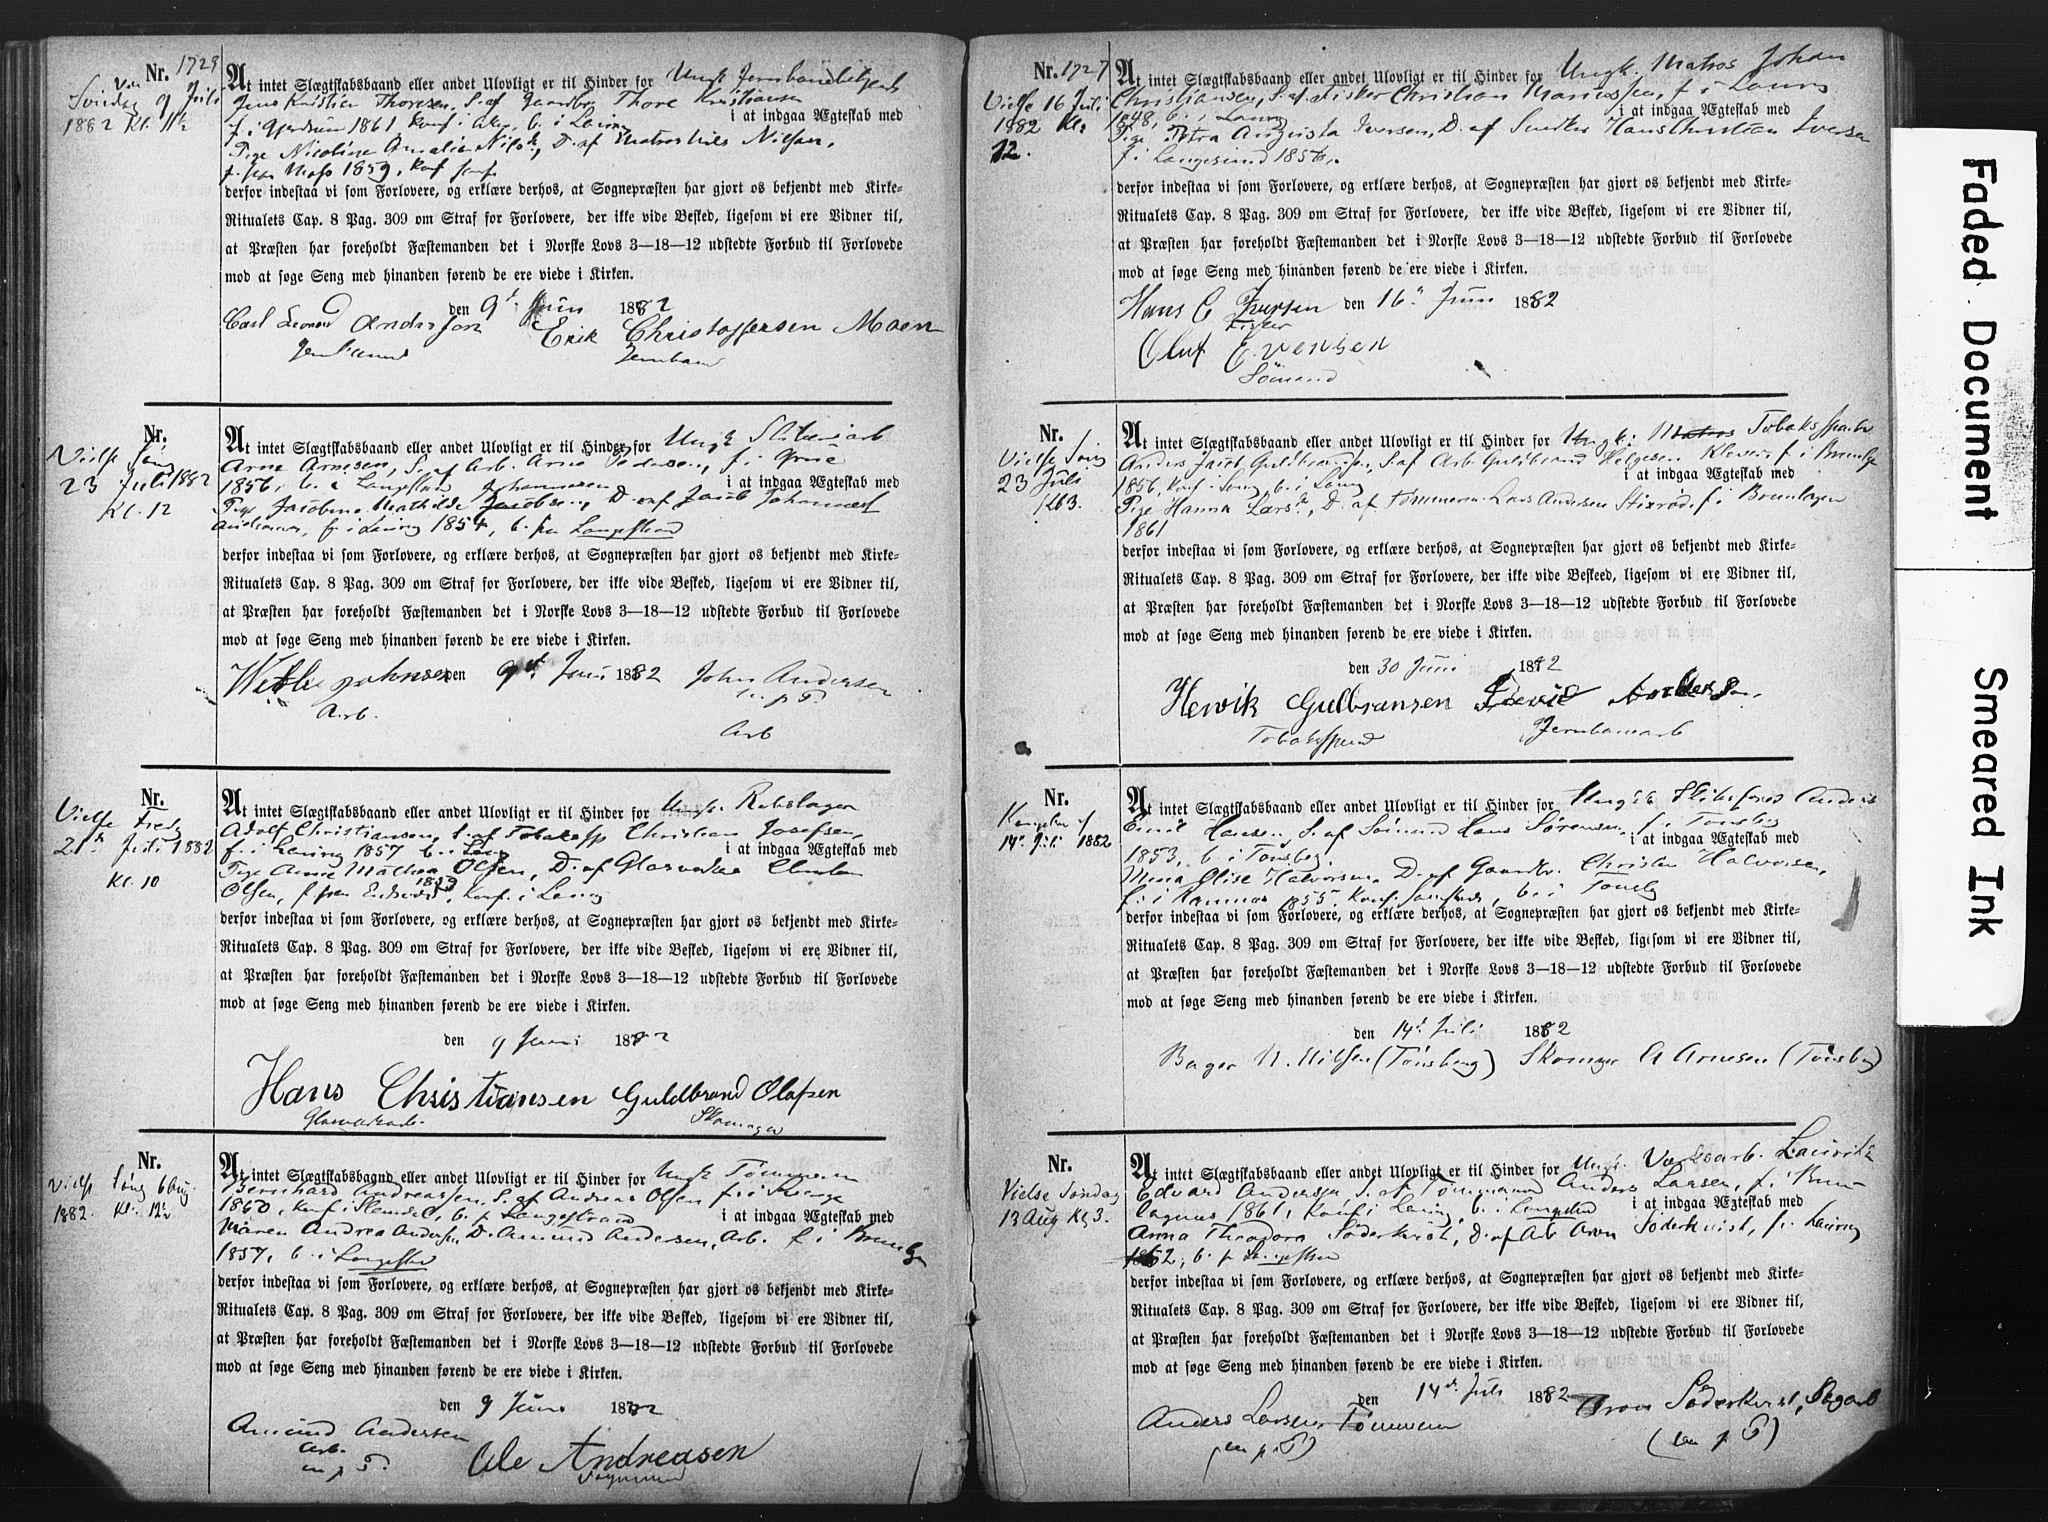 Nr. 1723
Viel
Søndag 9 Juli
1882 Kl. 11½
At intet Slægtskabsbaand eller andet Ulovligt er til Hinder for Ungk. Jernbanebetjent
Jens Kristian Thoresen, S. af Gaardbr. Thore Kristiansen
f. i Gjerdrum 1861 Konf i Aker, b. i Laurv i at indgaa Ægteskab med
Pige Nicoline Amalie Nilsdr, D. af Matros Nils Nilsen,
1859, Konf
derfor indestaa vi som Forlovere, og erklære derhos, at Sognepræsten har gjort os bekjendt med Kirke-
Ritualets Cap. 8 Pag. 309 om Straf for Forlovere, der ikke vide Besked, ligesom vi ere Vidner til,
at Præsten har foreholdt Fæstemanden det i Norske Lovs 3—18—12 udstedte Forbud til Forlovede
mod at søge Seng med hinanden førend de ere viede i Kirken.
den 9d Juni 1882
Carl Leonard Anderson Erik Christoffersen Moen
Jernban
Nr.
Vielse Søng
23 Juli 1882
Kl. 12
At intet Slægtskabsbaand eller andet Ulovligt er til Hinder for Ungk Sliberiarb
Arne Arnesen, S. af Arb. Arne Pedersen, f. i
1856, b. i Langestrand i at indgaa Ægteskab med
Johannesen
Pige Jacobine Mathilde Jacobsen, D. af Jacob Johannes
Andersen, f. i Laurvig 1854, b. paa Langestrand
derfor indestaa vi som Forlovere, og erklære derhos, at Sognepræsten har gjort os bekjendt med Kirke-
Ritualets Cap. 8 Pag. 309 om Straf for Forlovere, der ikke vide Besked, ligesom vi ere Vidner til,
at Præsten har foreholdt Fæstemanden det i Norske Lovs 3—18—12 udstedte Forbud til Forlovede
mod at søge Seng med hinanden førend de ere viede i Kirken.
Johnsen den 9d Juni 1882 John Andersen
Arb. m. p. P.
Arb
Nr.
Vielse Fredg
21de Juli 1882
Kl. 10
At intet Slægtskabsbaand eller andet Ulovligt er til Hinder for Ungk. Rebslager
Adolf Christiansen, S. af Tobaksp Christian Josefsen,
f. i Laurvig 1857 b. i Laurv i at indgaa Ægteskab med
Pige Anne Mathea Olsen, D. af Glasværksa Christian
Olsen, 1859, Konf. i Laurvig
derfor indestaa vi som Forlovere, og erklære derhos, at Sognepræsten har gjort os bekjendt med Kirke-
Ritualets Cap. 8 Pag. 309 om Straf for Forlovere, der ikke vide Besked, ligesom vi ere Vidner til,
at Præsten har foreholdt Fæstemanden det i Norske Lovs 3—18—12 udstedte Forbud til Forlovede
mod at søge Seng med hinanden førend de ere viede i Kirken.
den 9 Juni 1882
Hans Christiansen Guldbrand Olafsen
Glasværksarb. Skomager
Nr.
Vielse Søng 6 Aug.
1882. Kl. 12½
At intet Slægtskabsbaand eller andet Ulovligt er til Hinder for Ungk Tømmerm
Bernhard Andreassen, S. af Andreas Olsen, f. i
1860, Konf i b. p Langestrand i at indgaa Ægteskab med
Maren Andrea Anders, D. Amund Andersen, Arb. f. i Brunla
1857, b. i Langestrd
derfor indestaa vi som Forlovere, og erklære derhos, at Sognepræsten har gjort os bekjendt med Kirke-
Ritualets Cap. 8 Pag. 309 om Straf for Forlovere, der ikke vide Besked, ligesom vi ere Vidner til,
at Præsten har foreholdt Fæstemanden det i Norske Lovs 3—18—12 udstedte Forbud til Forlovede
mod at søge Seng med hinanden førend de ere viede i Kirken.
den 9 Juni 1882
Amund Andersen
Arb. Ole Andreasen
m p P.
Nr. 1727
Vielse 16 Juli
1882 Kl.
12.
At intet Slægtskabsbaand eller andet Ulovligt er til Hinder for Ungk. Matros Johan
Christiansen, S. af Fisker Christian Mariussen, f. i Laurv
1848, b. i Laurv i at indgaa Ægteskab med
Pige Petra Augusta Iversen, D. af Snedker Hans Christian Iversen
f. i Langesund 1856.
derfor indestaa vi som Forlovere, og erklære derhos, at Sognepræsten har gjort os bekjendt med Kirke-
Ritualets Cap. 8 Pag. 309 om Straf for Forlovere, der ikke vide Besked, ligesom vi ere Vidner til,
at Præsten har foreholdt Fæstemanden det i Norske Lovs 3—18—12 udstedte Forbud til Forlovede
mod at søge Seng med hinanden førend de ere viede i Kirken.
Hans C Iversen den 16d Juni 1882
Fisker
Oluf Evensen
Sømand
Nr.
Vielse Søng
23 Juli
Kl 3.
At intet Slægtskabsbaand eller andet Ulovligt er til Hinder for Ungk. Matros Tobaksspinder
Anders Jacob Guldbrandsen, S. af Arb. Guldbrand Helgesen Kleven, f. i Brunla
1856, Konf i Laurv, b. i Laurv i at indgaa Ægteskab med
Pige Hanna Larsd, D. af Tømmerm Lars Andersen Stixrød, f. i Brunlagen
1861
derfor indestaa vi som Forlovere, og erklære derhos, at Sognepræsten har gjort os bekjendt med Kirke-
Ritualets Cap. 8 Pag. 309 om Straf for Forlovere, der ikke vide Beskeed, ligesom vi ere Vidner til,
at Præsten har foreholdt Fæstemanden det i Norske Lovs 3—18—12 udstedte Forbud til Forlovede
mod at søge Seng med hinanden førend de ere viede i Kirken.
den 30 Juni 1882
Henrik Gulbransen
Tobaksspind Jernbanearb
Nr.
14de Juli 1882
At intet Slægtskabsbaand eller andet Ulovligt er til Hinder for Ungk Anders
Emil Hansen, S. af Sømand Hans Sørensen, f. i Tønsberg
1853, b. i Tønsberg. i at indgaa Ægteskab med
Mina Elise Halvorsen, D. af Gaardbr. Christen Halvorsen,
f. i 1855, Konf. Sandeherd, b. i Tønsbg
derfor indestaa vi som Forlovere, og erklære derhos, at Sognepræsten har gjort os bekjendt med Kirke-
Ritualets Cap. 8 Pag. 309 om Straf for Forlovere, der ikke vide Besked, ligesom vi ere Vidner til,
at Præsten har foreholdt Fæstemanden det i Norske Lovs 3—18—12 udstedte Forbud til Forlovede
mod at søge Seng med hinanden førend de ere viede i Kirken.
den 14d Juli 1882
Bager N. Nilsen (Tønsberg) Skomager A Arnesen (Tønsberg)
Nr.
Vielse Søndag
13 Aug Kl 3.
At intet Slægtskabsbaand eller andet Ulovligt er til Hinder for Ungk. Værksarb. Lauritz
Edvard Andersen, S. af Tømmermand Anders Larsen, f. i Brun
lagnes 1861, Konf i Laurvig b. i Langestrd i at indgaa Ægteskab med
Anna Theodora Söderkvist, D. af Arb Aron Söderkvist, f. i Laurvig
1862, b. p Langestran
derfor indestaa vi som Forlovere, og erklære derhos, at Sognepræsten har gjort os bekjendt med Kirke-
Ritualets Cap. 8 Pag. 309 om Straf for Forlovere, der ikke vide Besked, ligesom vi ere Vidner til,
at Præsten har foreholdt Fæstemanden det i Norske Lovs 3—18—12 udstedte Forbud til Forlovede
mod at søge Seng med hinanden førend de ere viede i Kirken.
den 14d Juli 1882
Anders Larsen Tømmerm Aron Söderkvist, Dagarb
(m p. P) (m p P)
Faded Document
Smeared Ink